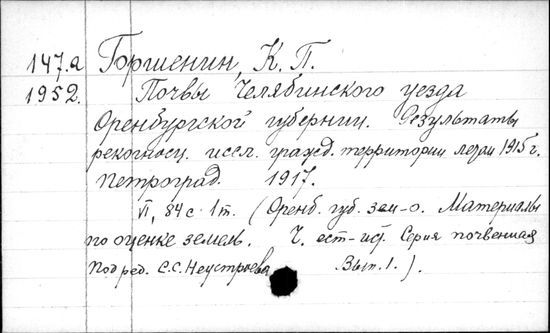 147.а Горшенин, К. П.
1952. Почвы Челябинского уезда
Оренбургской губернии. Результаты
рекогносц. иссл. территории летом 1915 г.
Петроград. 1917.
VI, 84 с. 1 т. (Оренб. губ. зем-о. Материалы
по оценке земель. Ч. ест-ист. Серия почвенная
Под ред. С.С. Неуструева Вып. 1.).